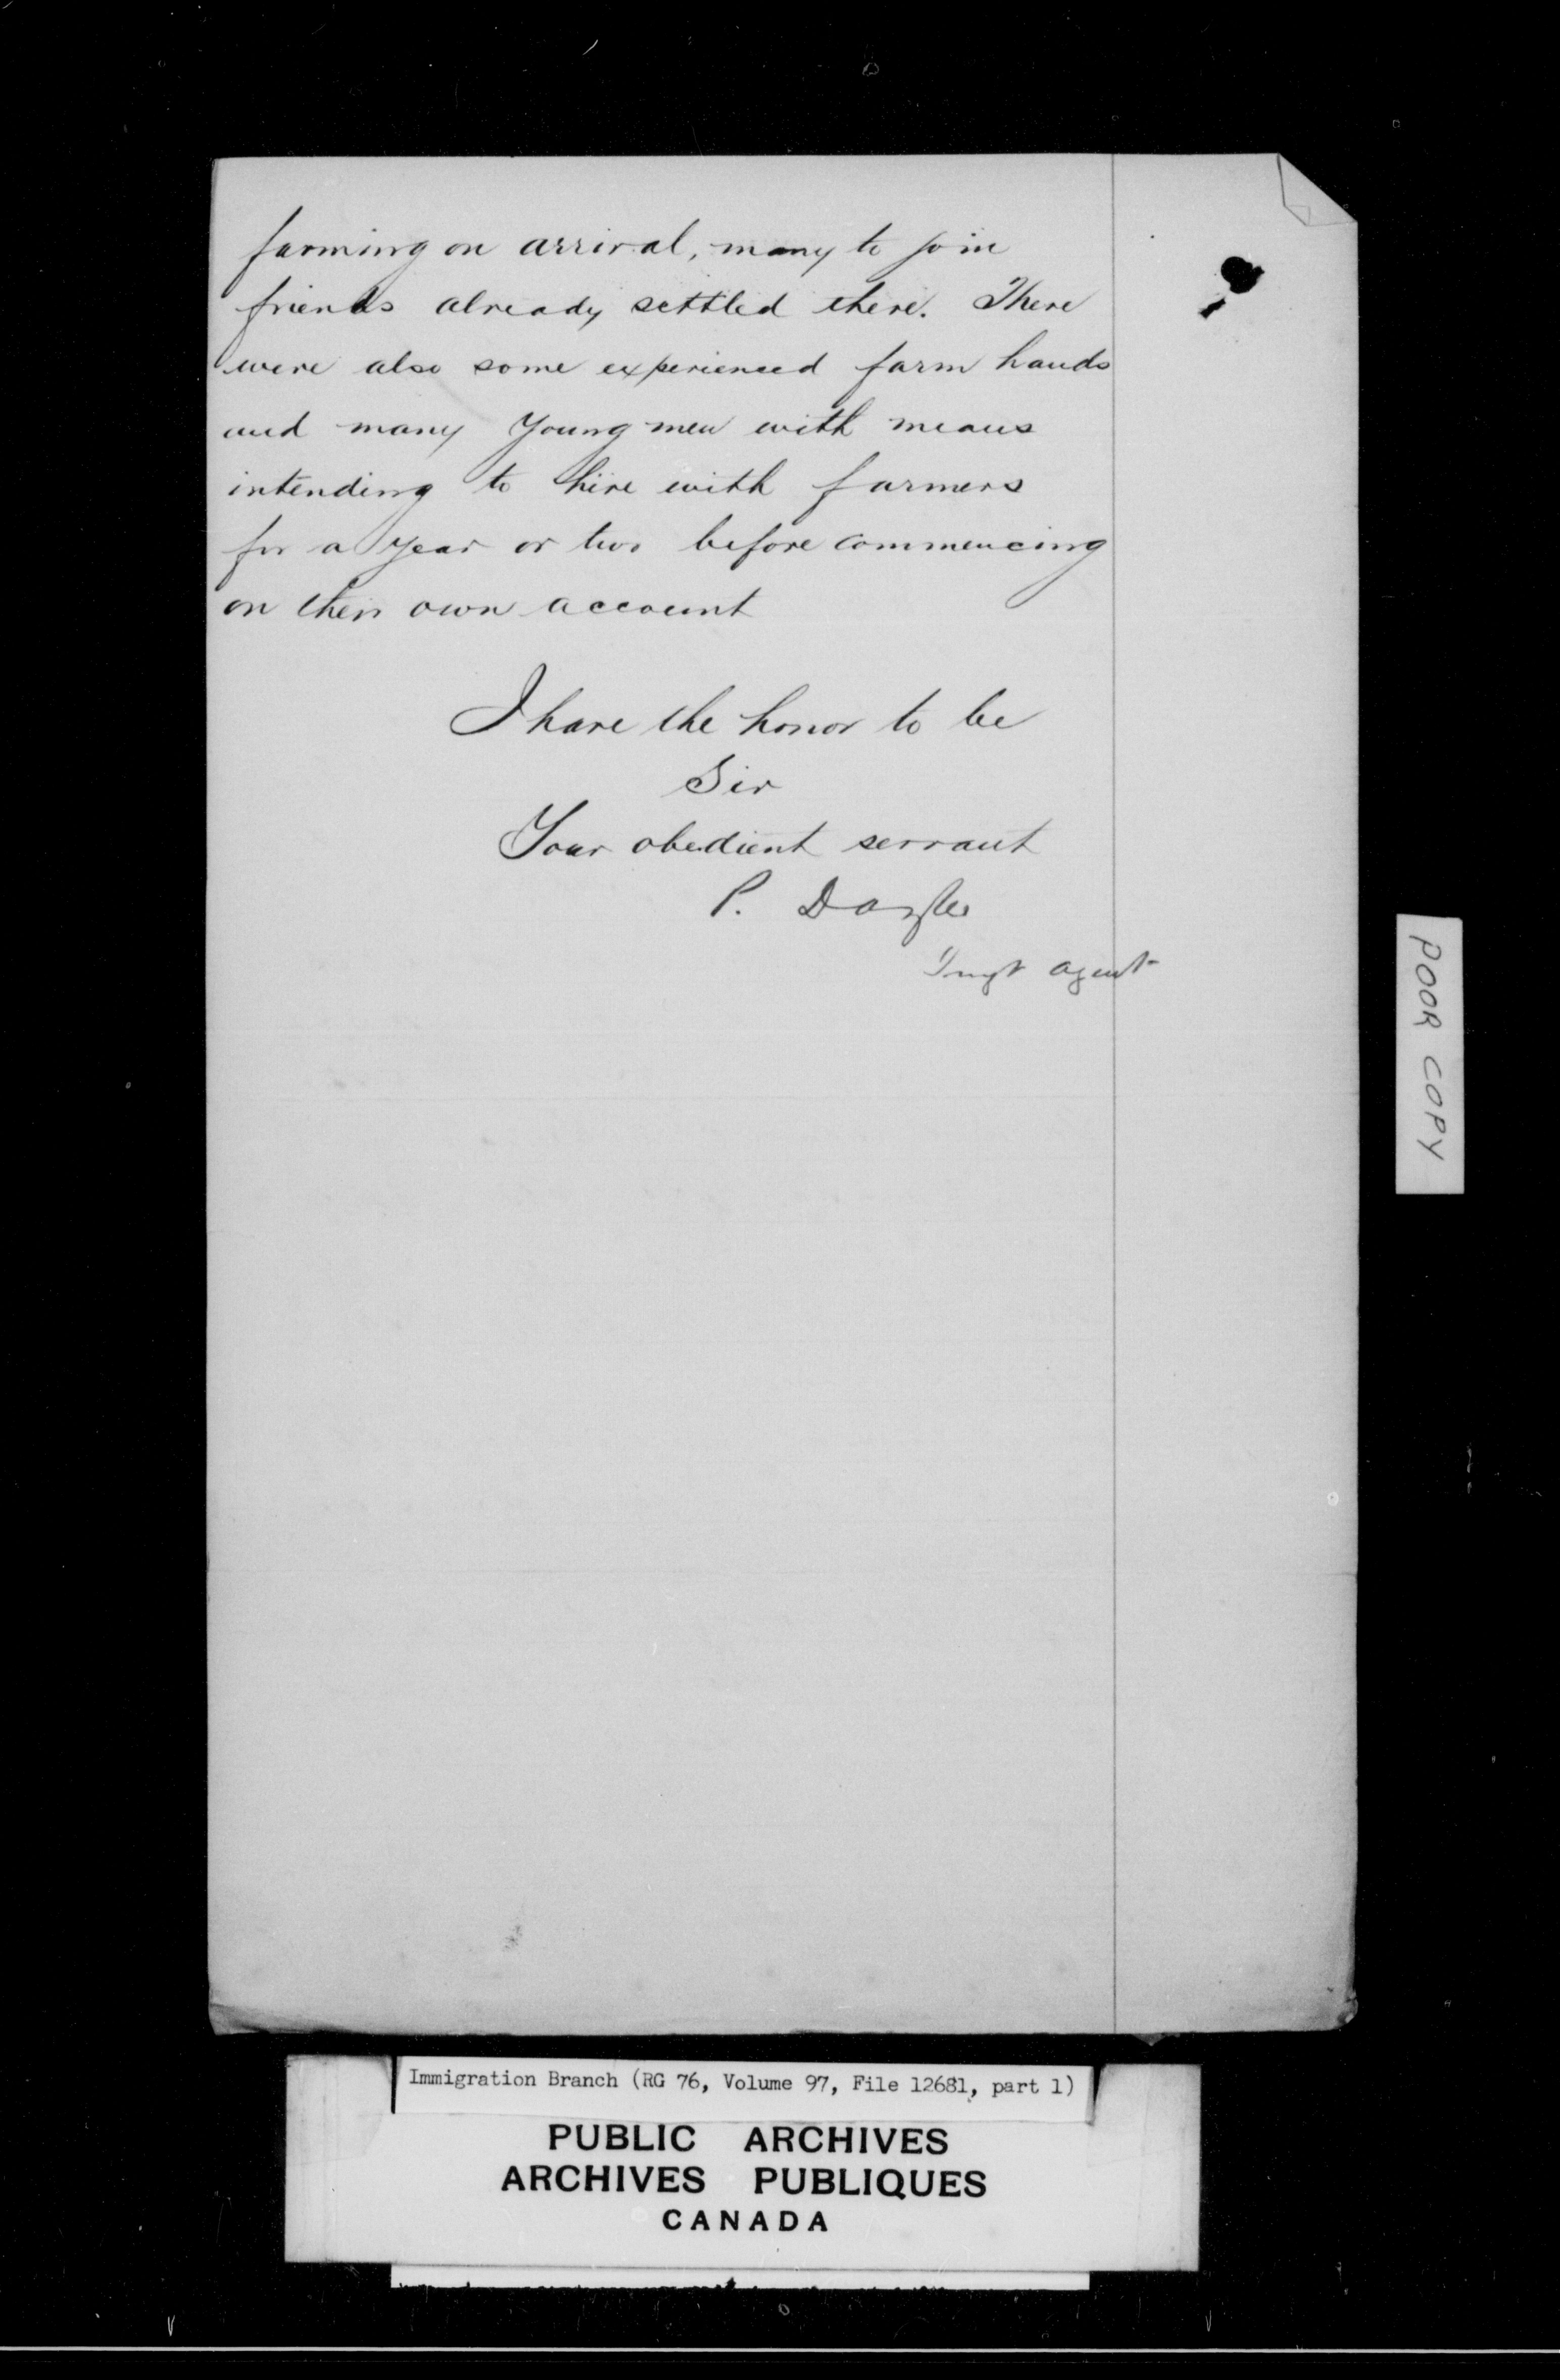 farming on arrival, many to join
friends already settled there. There
were also some experienced farm hands
and many young men with means
intending to hire with farmers
for a year or two before commencing
on their own account
I have the honor to be
Sir
Your obedient servant
P. Doyle
Imgt Agent
POOR COPY
Immigration Branch (RG 76, Volume 97, File 12681, part 1)
PUBLIC ARCHIVES
ARCHIVES PUBLIQUES
CANADA